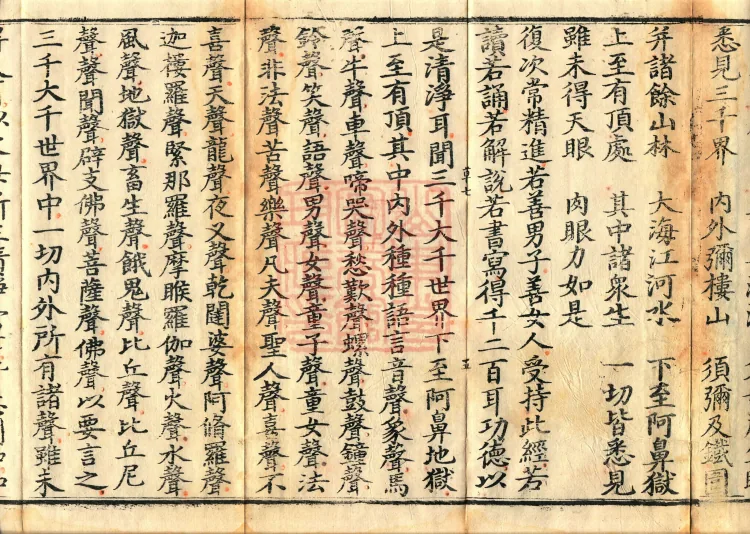 悉見三千界　內外彌樓山　須彌及鐵圍
并諸餘山林　大海江河水　下至阿鼻獄
上至有頂處　其中諸衆生　一切皆悉見
雖未得天眼　肉眼力如是
復次常精進若善男子善女人受持此經若
讀若誦若解說若書寫得千二百耳功德以
是清淨耳聞三千大千世界下至阿鼻地獄
上至有頂其中內外種種語言音聲象聲馬
聲牛聲車聲啼哭聲愁歎聲螺聲鼓聲鐘聲
鈴聲笑聲語聲男聲女聲童子聲童女聲法
聲非法聲苦聲樂聲凡夫聲聖人聲喜聲不
喜聲天聲龍聲夜叉聲乾闥婆聲阿脩羅聲
迦樓羅聲緊那羅聲摩睺羅伽聲火聲水聲
風聲地獄聲畜生聲餓鬼聲比丘聲比丘尼
聲聲聞聲辟支佛聲菩薩聲佛聲以要言之
三千大千世界中一切內外所有諸聲雖未